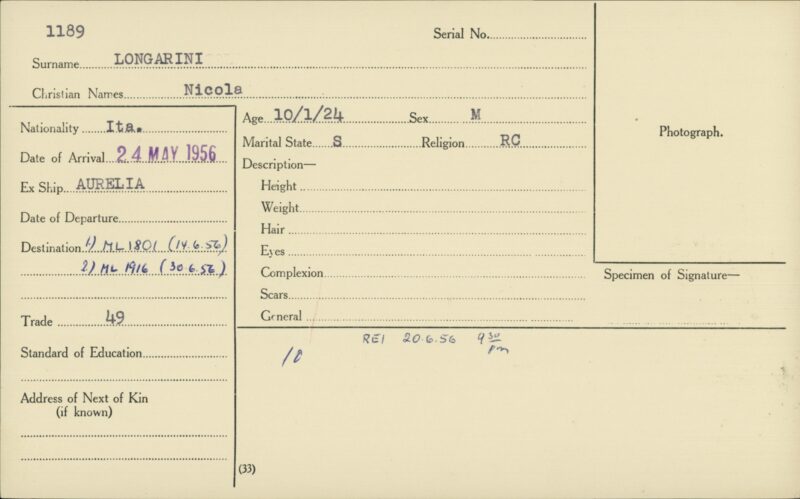 1189
Serial No.
Surname LONGARINI
Christian Names Nicola
Nationality Ita.
Date of Arrival 24 MAY 1956
Ex Ship AURELIA
Date of Departure
Destination 1) ML 1801 (14.6.56)
2) ML 1916 (30.6.56)
Trade 49
Standard of Education
Address of Next of Kin
(if known)
Age 10/1/24 Sex M
Marital State S Religion RC
Description—
Height
Weight
Hair
Eyes
Complexion
Scars
General
REI 20.6.56 9 30 pm
(33)
Photograph.
Specimen of Signature—